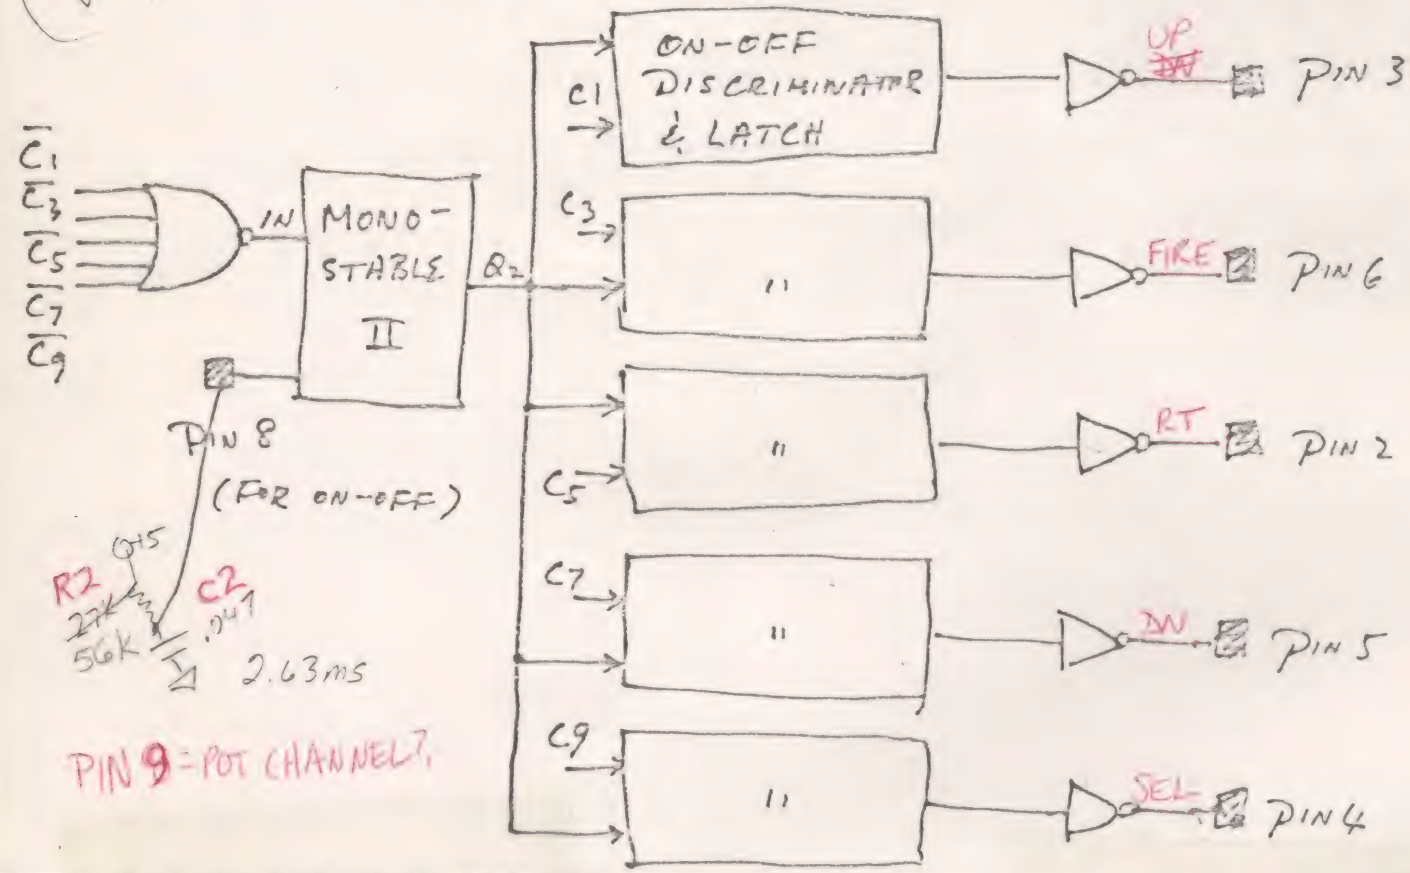 C̅1̅
C̅3̅
C̅5̅
C̅7̅
C̅9̅
IN
MONO-
STABLE
II
Q2
PIN 8
(FOR ON-OFF)
+5
R2
27K
56K
C2
.047
2.63ms
PIN 9 = POT CHANNEL?
ON-OFF
DISCRIMINATOR
& LATCH
C1
UP
DN
PIN 3
C3
"
FIRE
PIN 6
C5
"
RT
PIN 2
C7
"
DN
PIN 5
C9
"
SEL
PIN 4